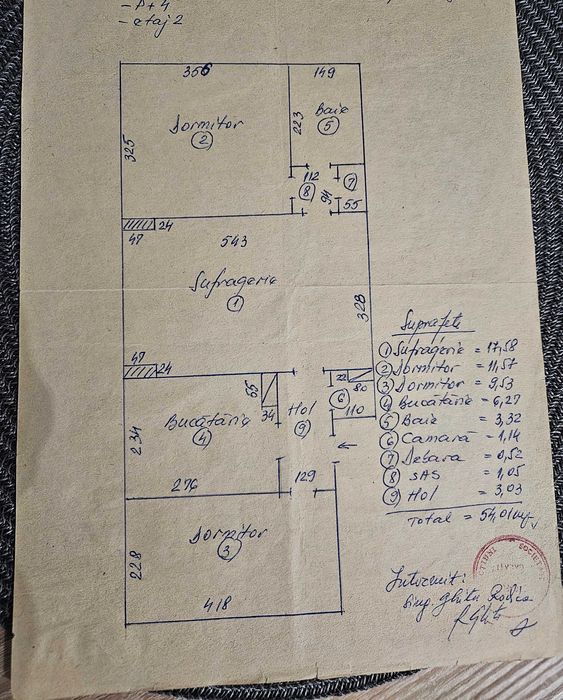 - P+4
- etaj 2
356
149
Baie
5
223
Dormitor
2
325
112
7
8
94
55
24
47
543
Sufragerie
1
328
47
24
22
80
55
6
34
Hol
110
Bucătărie
4
9
234
276
129
Dormitor
3
228
418
Suprafețe
1 Sufragerie = 17,58
2 Dormitor = 11,57
3 Dormitor = 9,53
4 Bucătărie = 6,27
5 Baie = 3,32
6 Camară = 1,14
7 Debara = 0,52
8 SAS = 1,05
9 Hol = 3,03
Total = 54,01 mp
Intocmit:
sing. Ghita Rodica